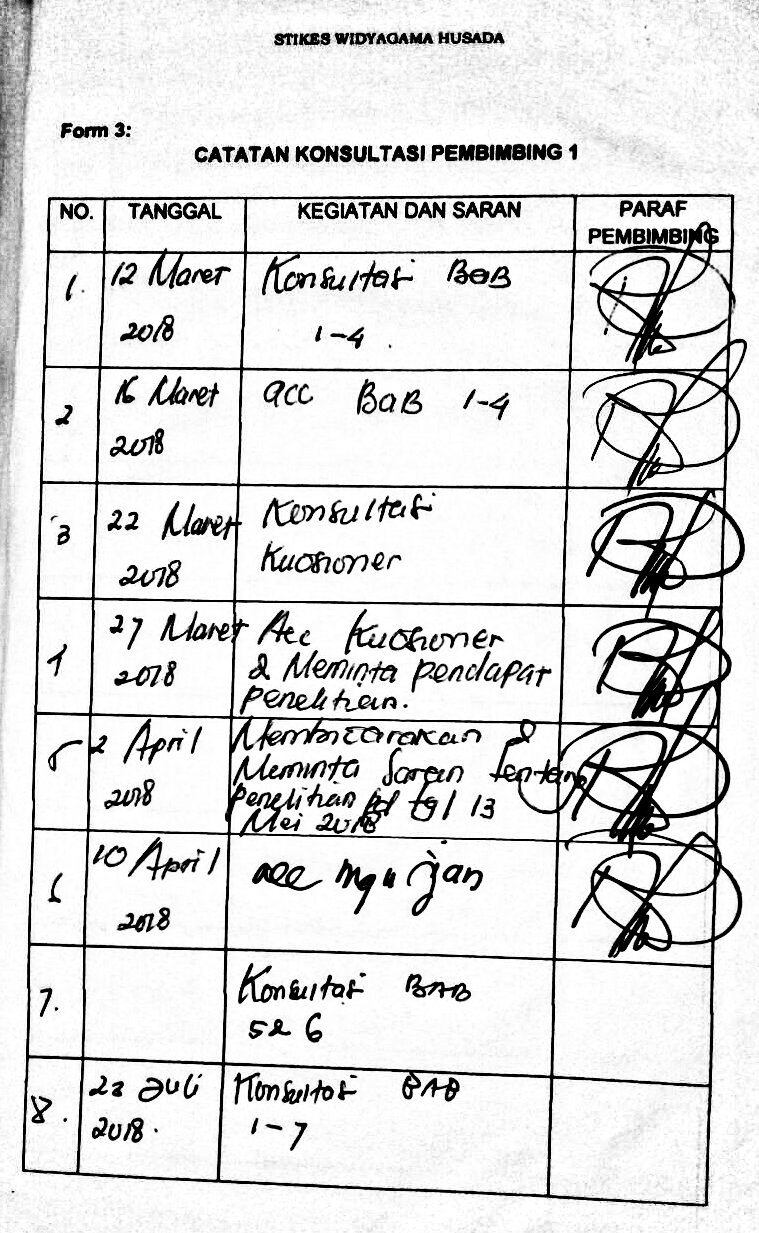 STIKES WIDYAGAMA HUSADA
Form 3:
CATATAN KONSULTASI PEMBIMBING 1
NO. TANGGAL KEGIATAN DAN SARAN PARAF PEMBIMBING
1. 12 Maret 2018 Konsultasi BAB
1-4.
2 16 Maret 2018 acc BaB 1-4
3 22 Maret 2018 Konsultasi
Kuosioner
4 27 Maret 2018 Acc Kuosioner
& Meminta pendapat
penelitian.
5 2 April 2018 Membicarakan &
Meminta Saran tentang
penelitian pd tgl 13
Mei 2018
6 10 April 2018 acc
7. Konsultasi BAB
5 & 6
8. 23 Juli 2018. Konsultasi BAB
1-7